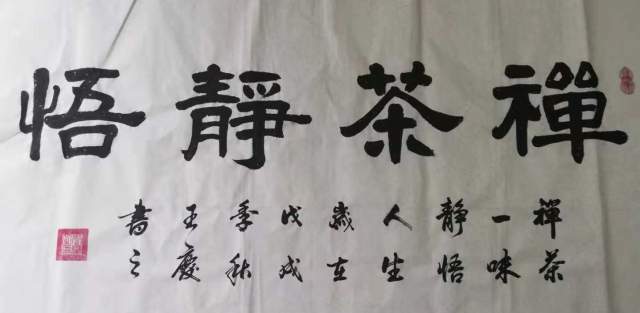 禪茶靜悟
禪茶
一味
靜悟
人生
歲在
戊戌
季秋
王慶
書之